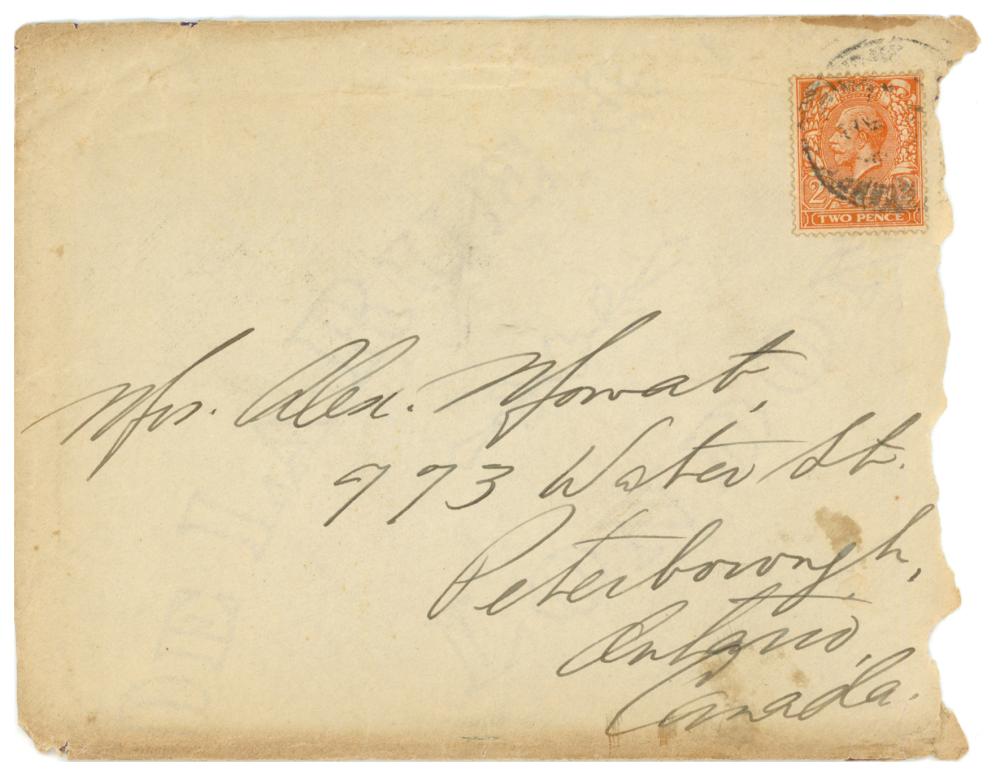 2
TWO PENCE
Mrs. Alex. Mowat,
973 Water St.
Peterborough,
Ontario,
Canada.